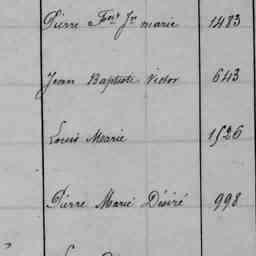 Pierre Fois Jn marie 1483
Jean Baptiste Victor 643
Louis Marie 1526
Pierre Marie Désiré 998